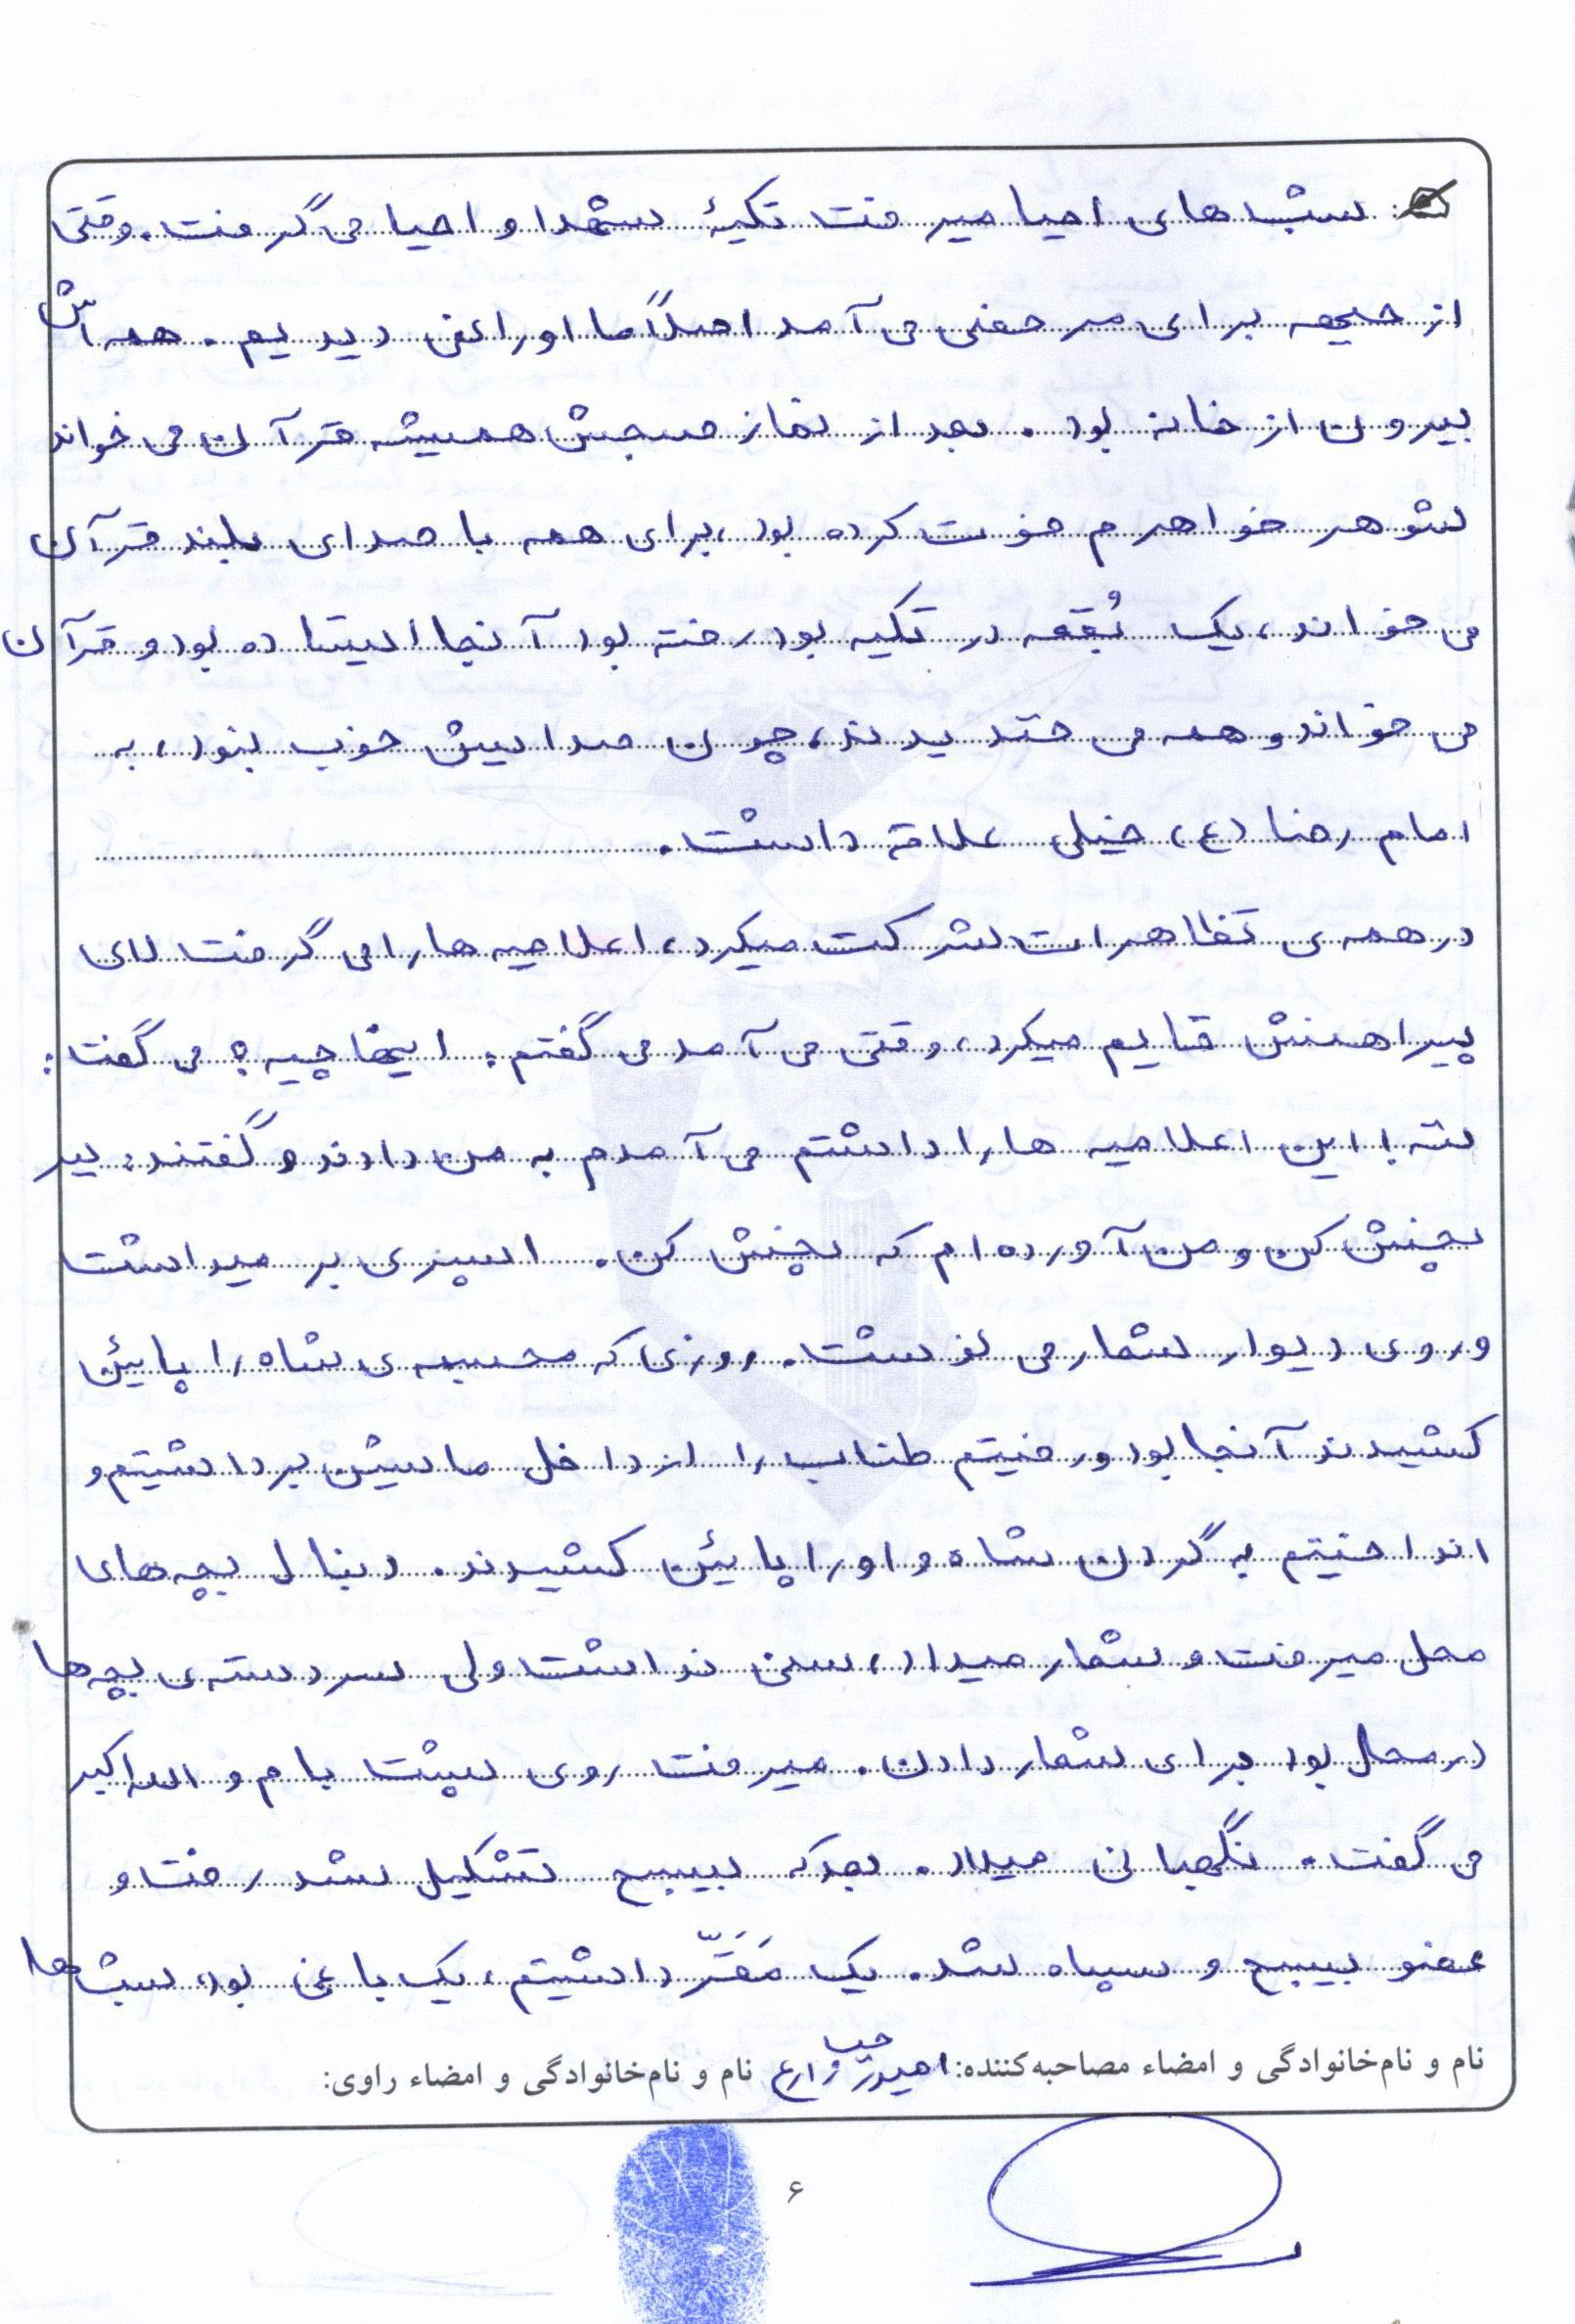 شب های احیا میرفت تکیهٔ شهدا و احیا می گرفت. وقتی
از جبهه برای مرخصی می آمد اصلاً ما او را نمی دیدیم. همه اش
بیرون از خانه بود. بعد از نماز صبحش همیشه قرآن می خواند
شوهر خواهرم فوت کرده بود، برای همه با صدای بلند قرآن
می خواند، یک بُقعه در تکیه بود رفته بود آنجا ایستاده بود و قرآن
می خواند و همه می خندیدند، چون صدایش خوب نبود، به
امام رضا (ع) خیلی علاقه داشت.
در همه ی تظاهرات شرکت میکرد، اعلامیه ها را می گرفت لای
پیراهنش قایم میکرد، وقتی می آمد می گفتم: اینها چیه؟ می گفت:
ننه! این اعلامیه ها را داشتم می آمدم به من دادند و گفتند: ببر
پخش کن و من آورده ام که پخش کن. اسپری بر میداشت
و روی دیوار شعار می نوشت. روزی که مجسمه ی شاه را پایین
کشیدند آنجا بود و رفتیم طناب را از داخل ماشین برداشتیم و
انداختیم به گردن شاه و او را پایین کشیدند. دنبال بچه های
محل میرفت و شعار میداد، سنی نداشت ولی سردسته ی بچه ها
در محل بود برای شعار دادن. میرفت روی پشت بام و الله اکبر
می گفت. نگهبانی میداد. بعد که بسیج تشکیل شد رفت و
عضو بسیج و سپاه شد. یک مَقَرّ داشتیم، یک باغی بود، شب ها
نام و نام‌خانوادگی و امضاء مصاحبه‌کننده: نام و نام‌خانوادگی و امضاء راوی:
۶